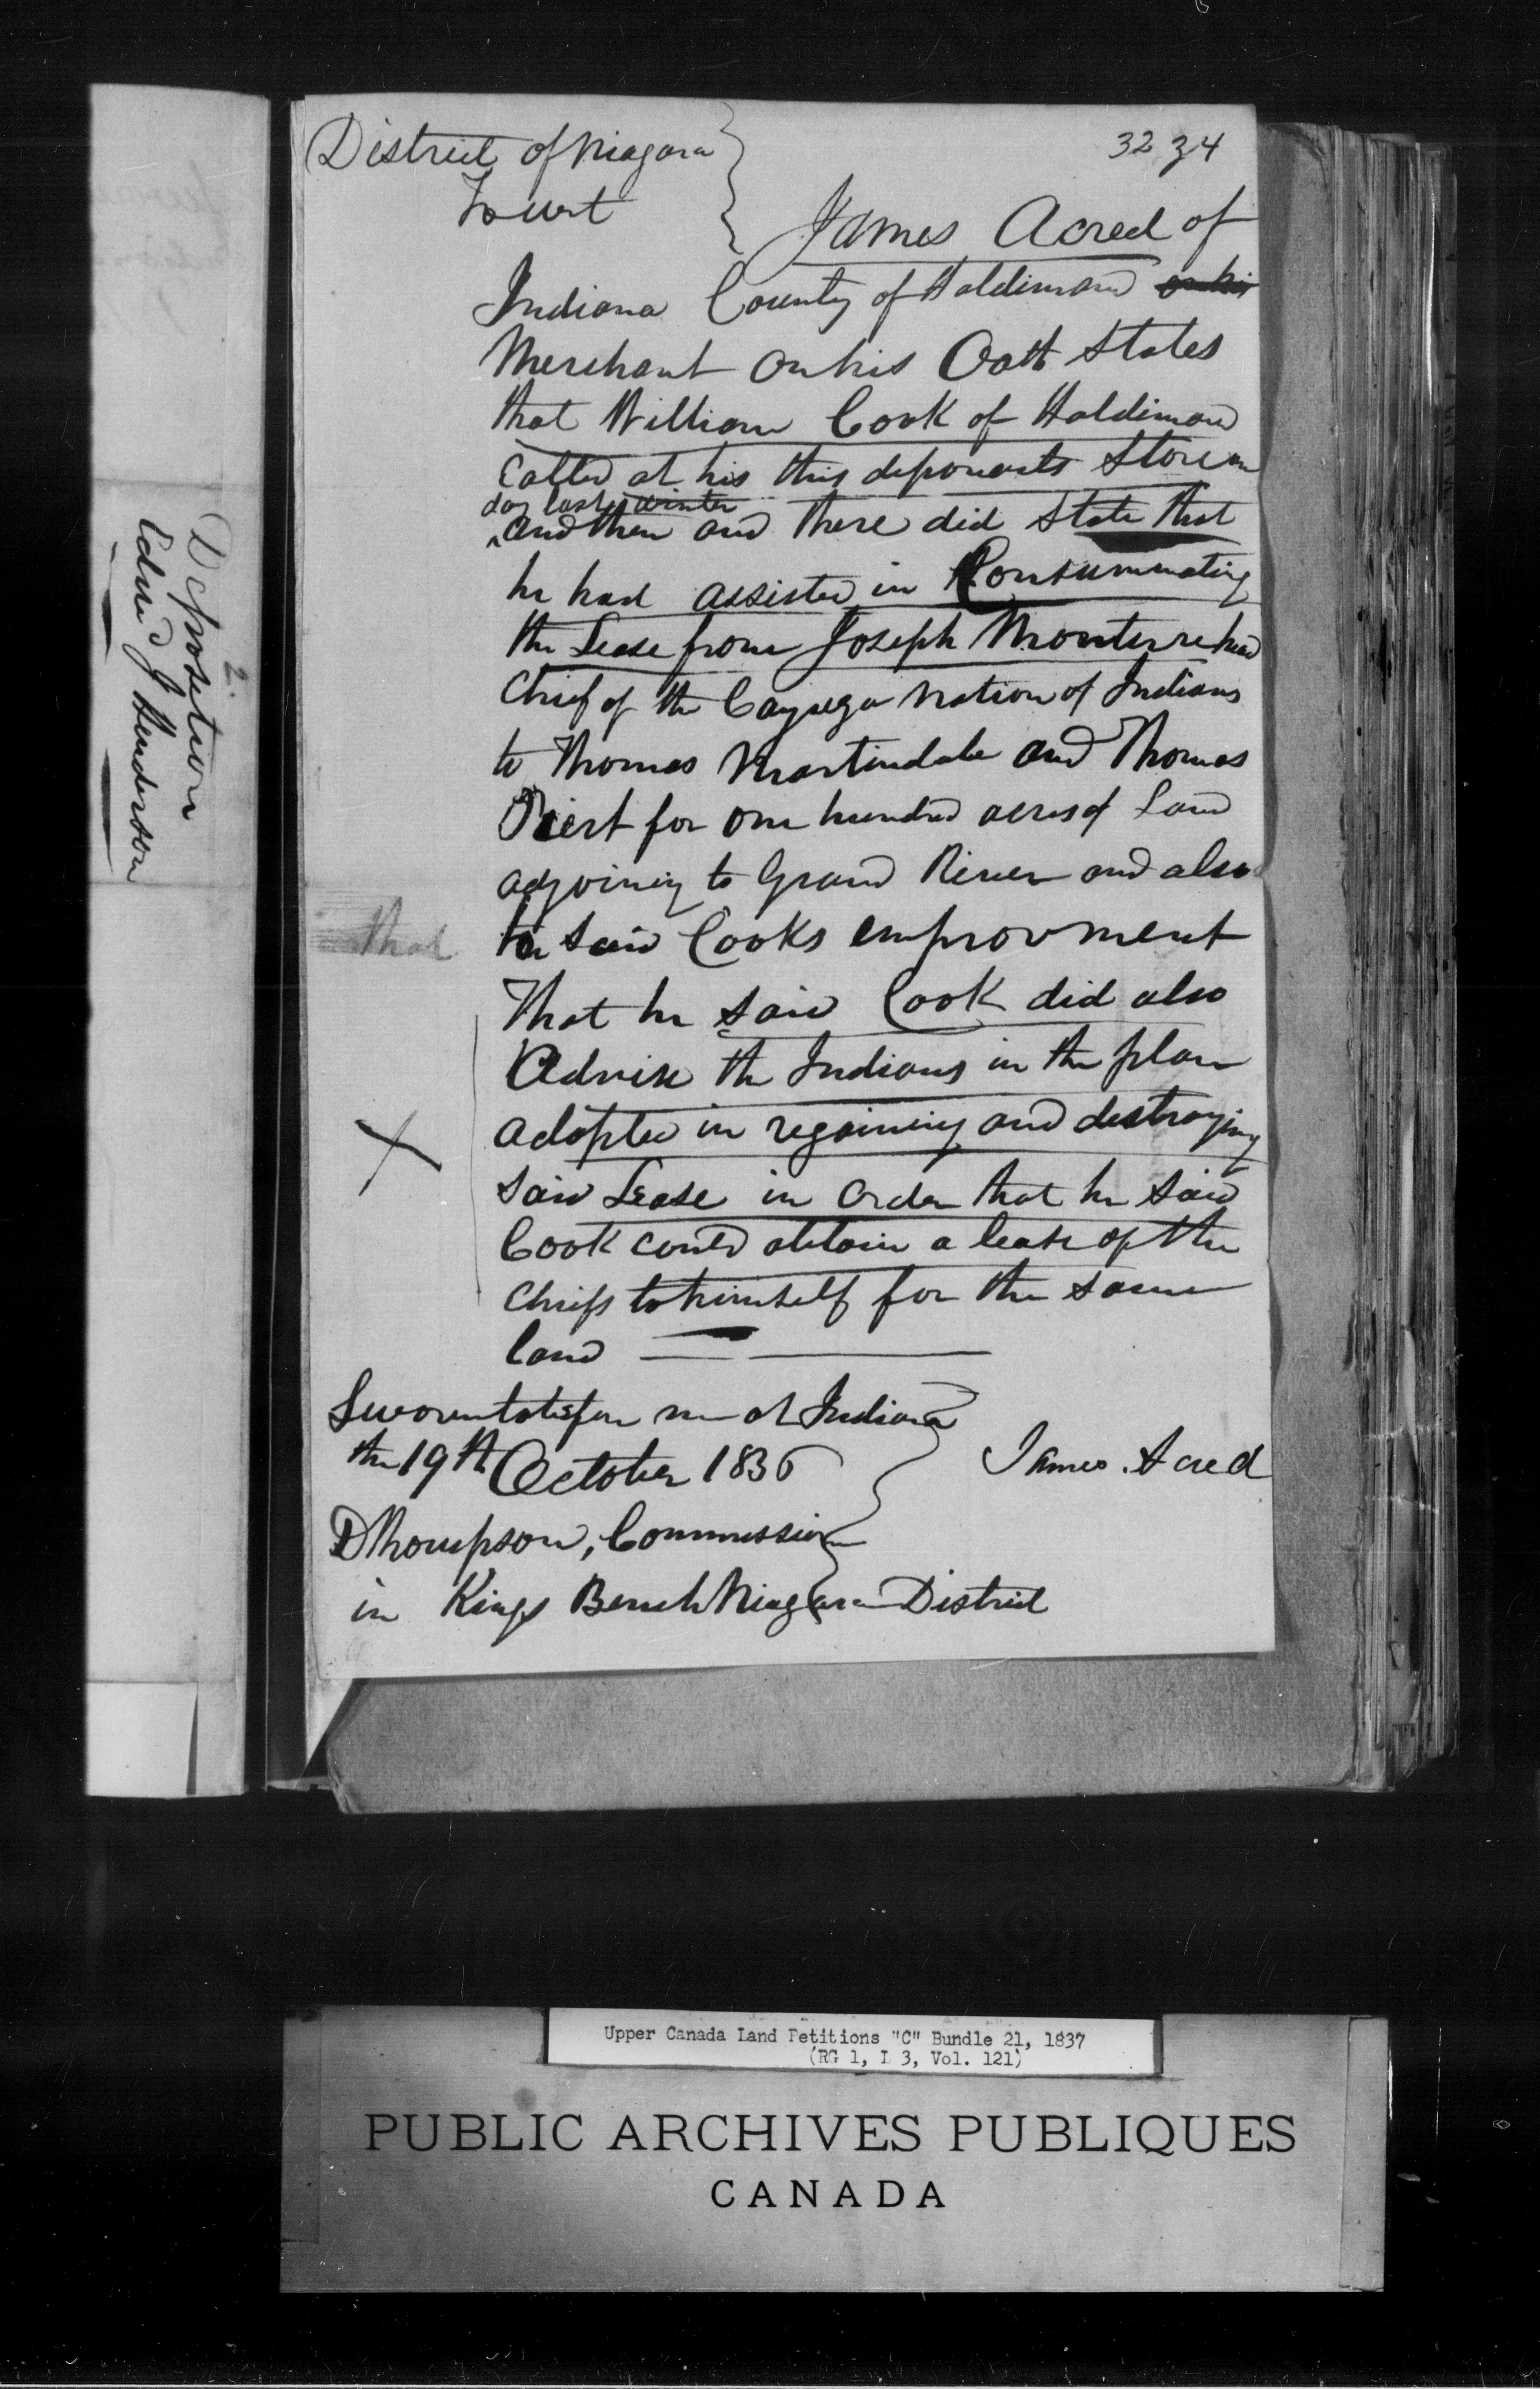 District of Niagara
To wit
3234
James Acred of
Indiana County of Haldimand on his
Merchant on his Oath States
that William Cook of Haldimand
Called at his this deponents Store on
day last winter
and then and there did State that
he had assisted in Consummating
the Lease from Joseph Monture head
Chief of the Cayuga Nation of Indians
to Thomas Martindale and Thomas
for one hundred acres of Land
adjoining to Grand River and also
that
to said Cooks improvment
That he said Cook did also
Advise the Indians in the plan
adopted in regaining and destroying
said Lease in order that he said
Cook could obtain a lease of the
Chiefs to himself for the same
land
Sworn to before me at Indiana
the 19th October 1836
James Acred
D Thompson, Commission
in Kings Bench Niagara District
2
Deposition
Edwd J Henderson
Upper Canada Land Petitions "C" Bundle 21, 1837
(RG 1, L 3, Vol. 121)
PUBLIC ARCHIVES PUBLIQUES
CANADA